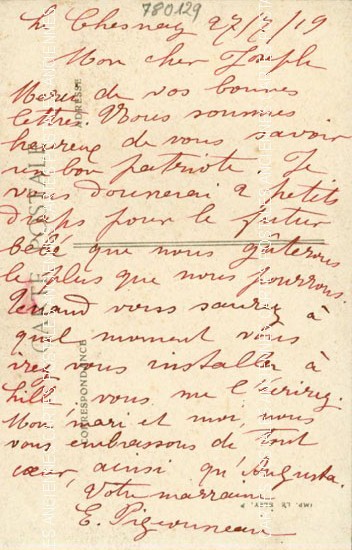 780129
Le Chesnay 27/7/19
Mon cher Joseph
Merci de vos bonnes
lettres. Nous sommes
heureux de vous savoir
un bon patriote. Je
vous donnerai 2 petits
draps pour le futur
bébé que nous gâterons
le plus que nous pourrons.
Quand vous saurez à
quel moment vous
irez vous installer à
Lille vous me l'écrirez.
Mon mari et moi, nous
vous embrassons de tout
cœur, ainsi qu'Augusta.
Votre marraine
E. Pigeonneau
CARTE POSTALE
ADRESSE
CORRESPONDANCE